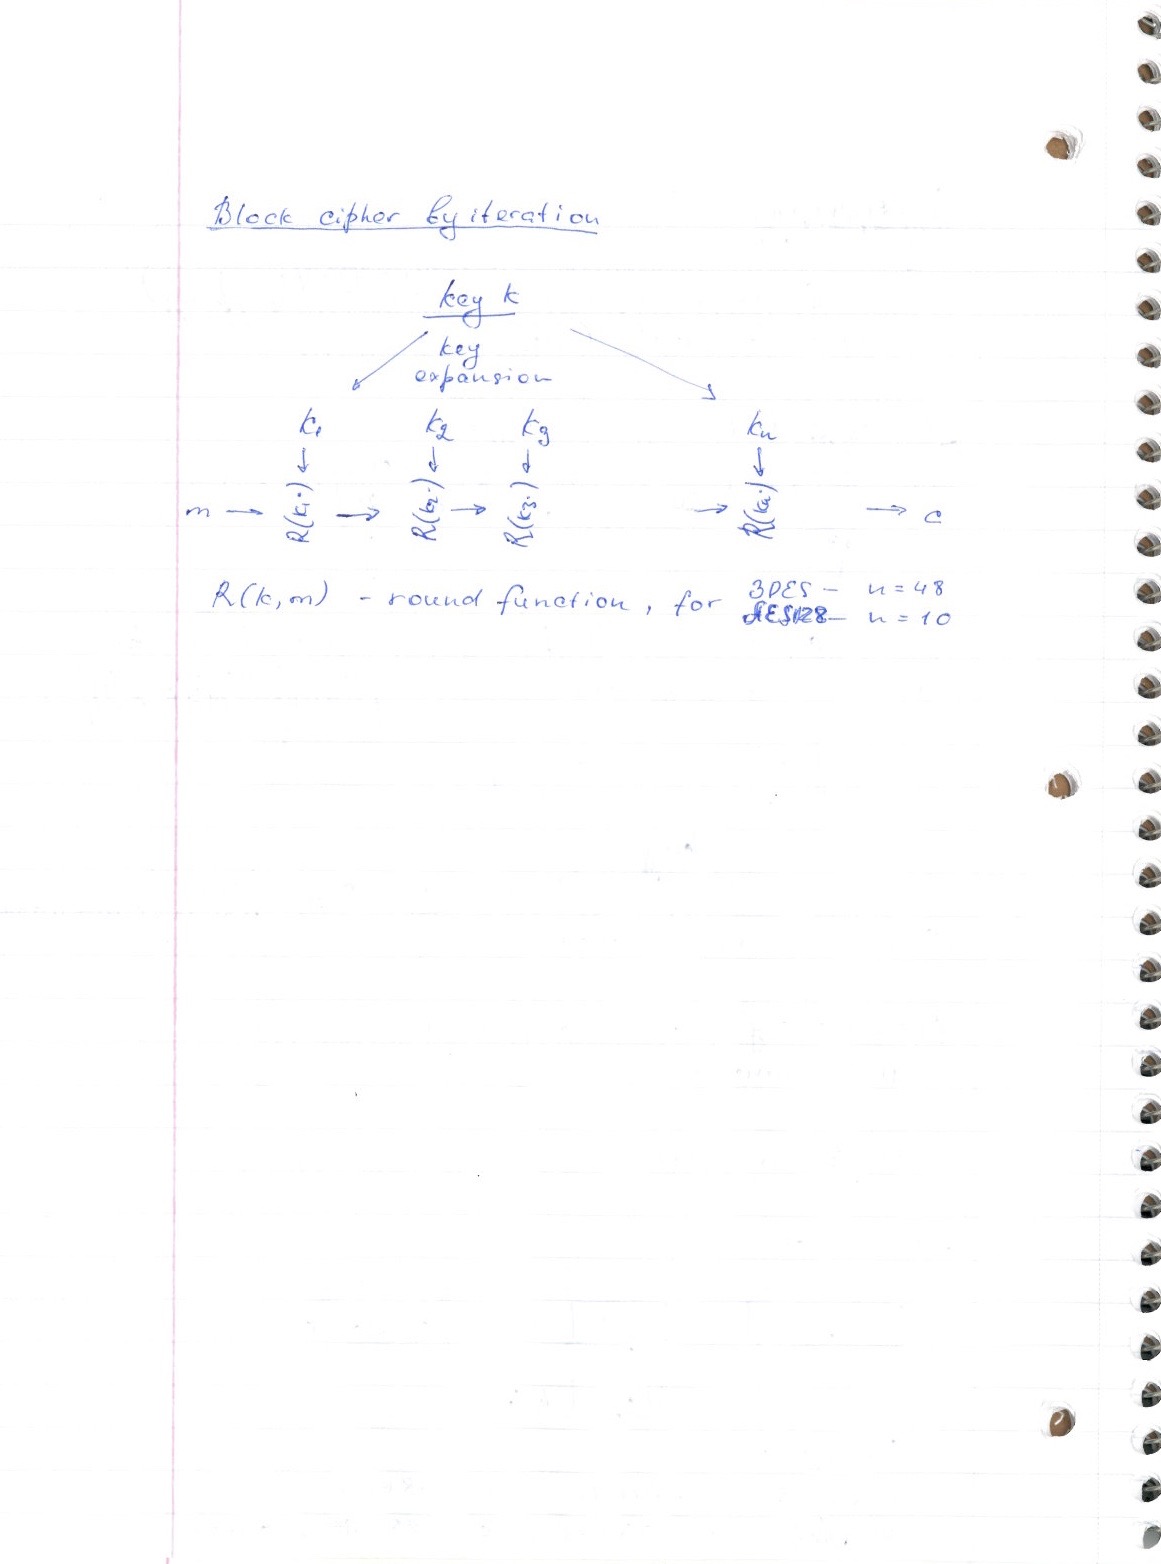 Block cipher by iteration
key k
key
expansion
k₁ k₂ k₃ kₙ
m → R(k₁,·) → R(k₂,·) → R(k₃,·) → R(kₙ,·) → c
R(k,m) - round function, for 3DES – n=48
AES128 – n=10